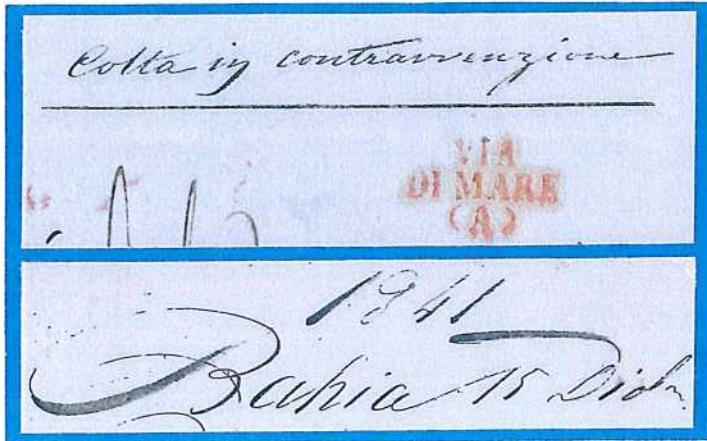 Colta in contravvenzione
VIA
DI MARE
(A)
1841
Bahia 15